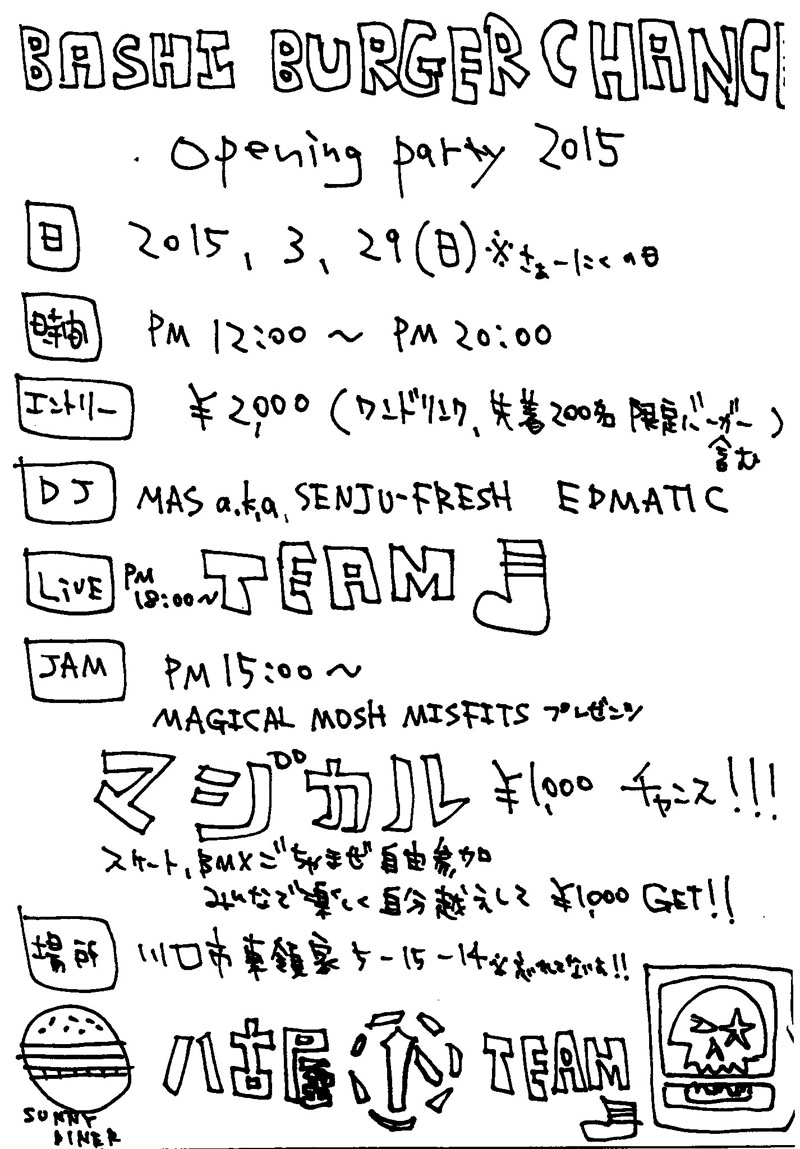 BASHI BURGER CHANC
Opening party 2015
日 2015, 3, 29(日) ※さぁーにくの日
時間 PM 12:00 〜 PM 20:00
エントリー ¥2,000 (ワンドリンク, 先着200名 限定バーガー)
含む
DJ MAS a.k.a. SENJU-FRESH EDMATIC
LiVE PM 18:00〜 TEAM
JAM PM 15:00 〜
MAGICAL MOSH MISFITS プレゼンツ
マジカル ¥1,000 チャンス!!!
スケート, BMX ごちゃまぜ 自由参加
みんなで楽しく自分越えして ¥1,000 GET!!
場所 川口市東領家 5-15-14
SUNNY
DINER
TEAM